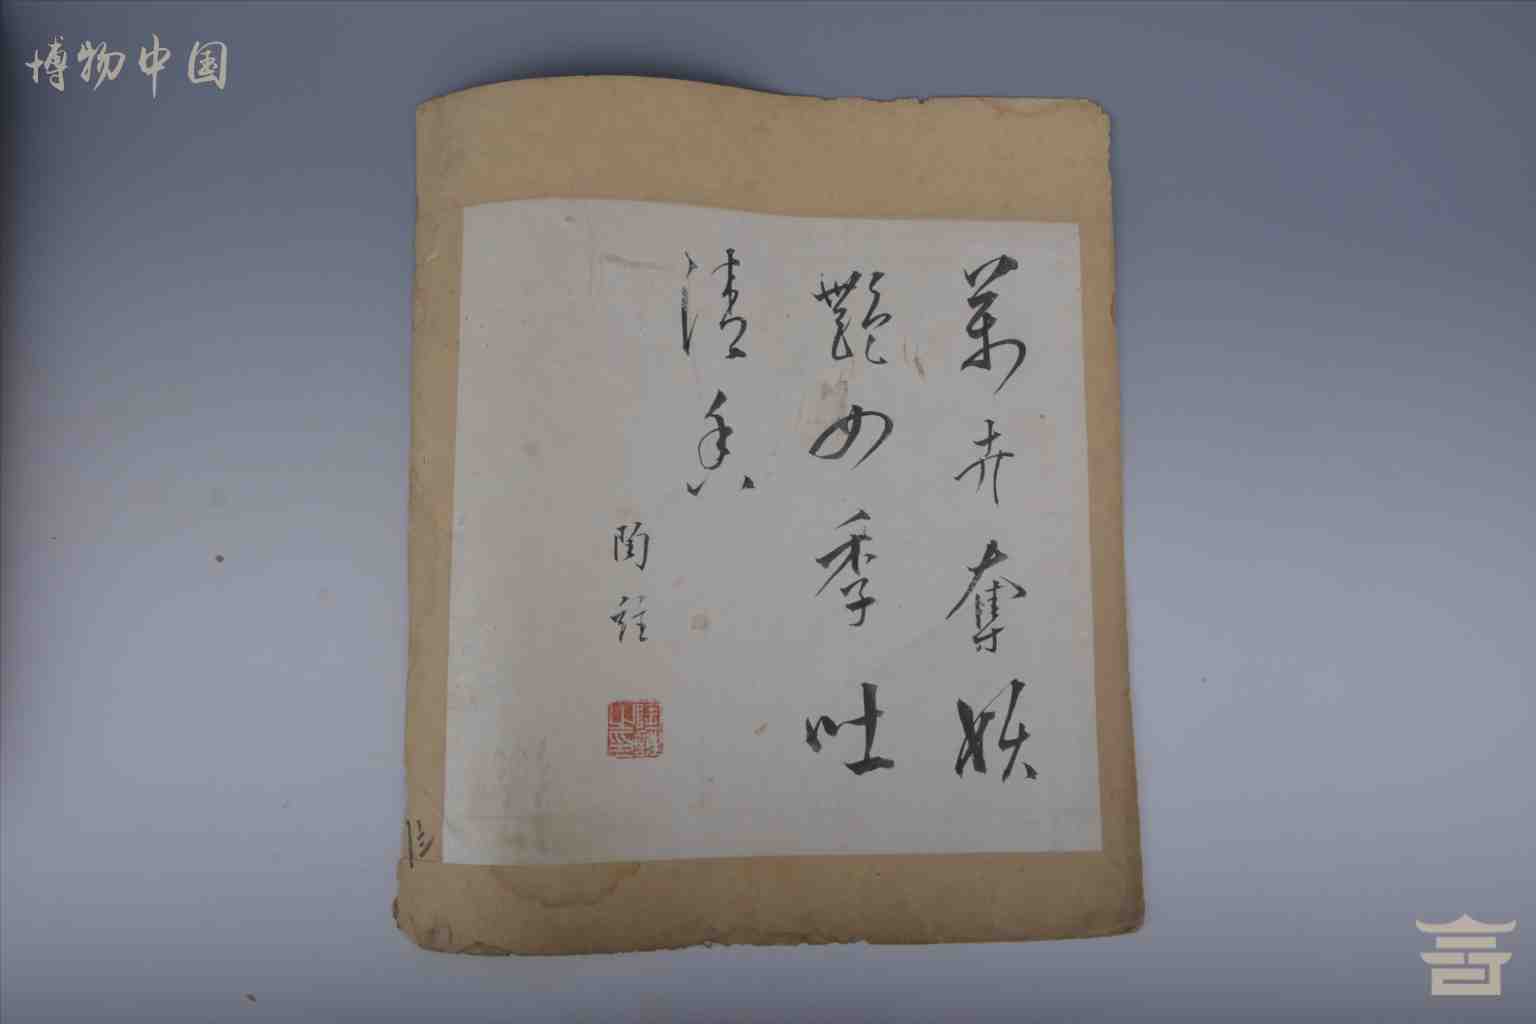 博物中国
萬卉奪妖
艷四季吐
清香
陶